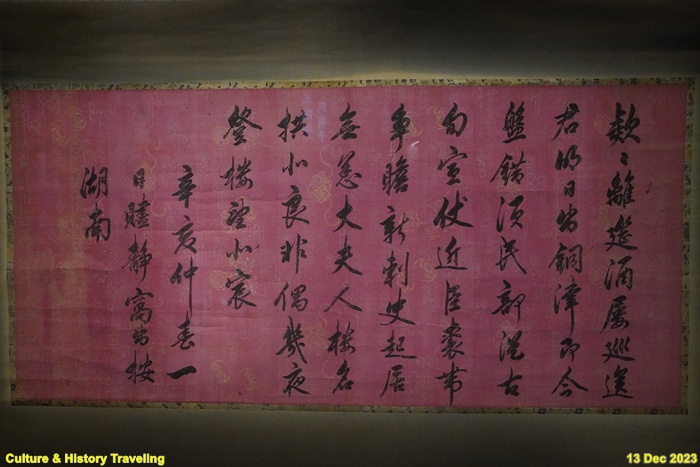 欵〻離筵酒屢巡送
君明日出銅津即今
盤錯須民部從古
旬宣仗近臣裘帶
爭瞻新刺史起居
無恙大夫人樓名
拱北良非偶幾夜
登樓望北宸
辛亥仲春一
日贐靜窩出按
湖南
Culture & History Traveling
13 Dec 2023